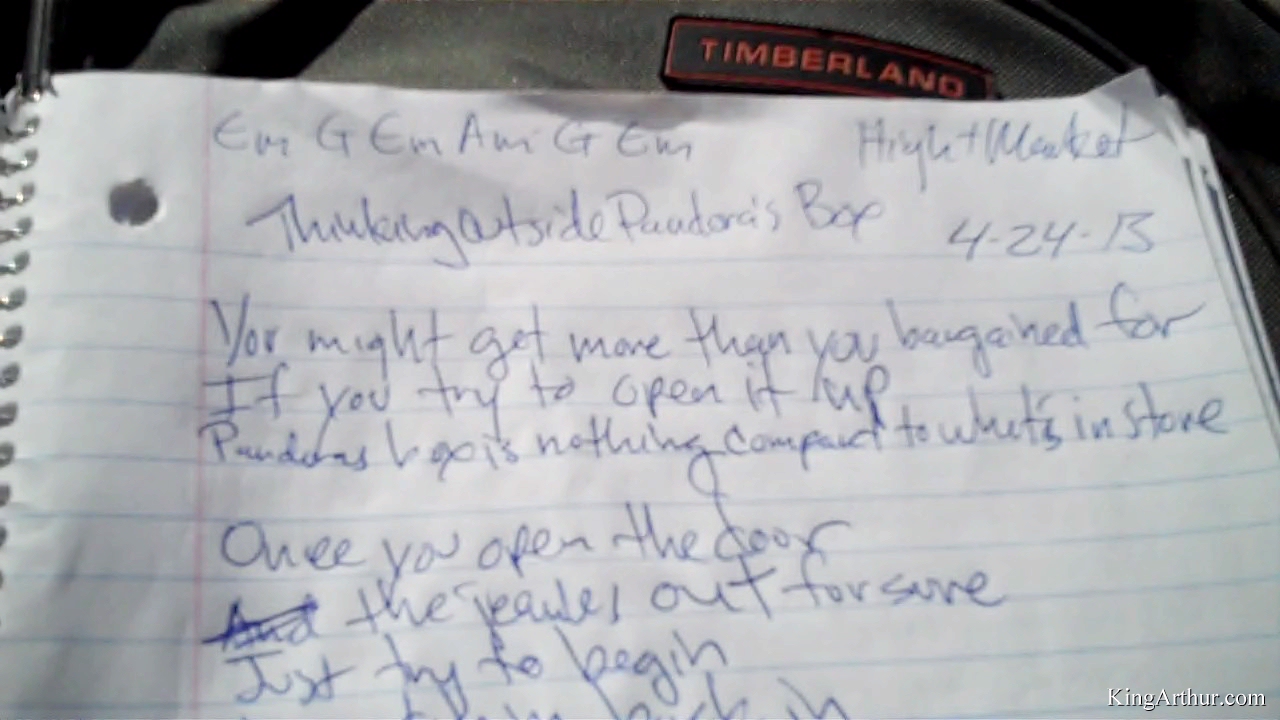 TIMBERLAND
Em G Em Am G Em
Hight Market
Thinking Outside Pandora's Box
4-24-13
You might get more than you bargained for
If you try to open it up
Pandoras box is nothing compared to what's in store
Once you open the door
And the out for sure
Just try to begin
back in
KingArthur.com